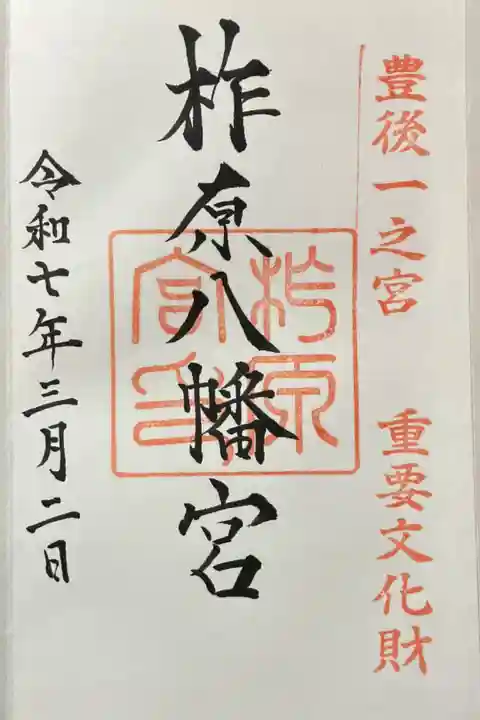 豊後一之宮　重要文化財
柞原八幡宮
柞原
宮印
令和七年三月二日